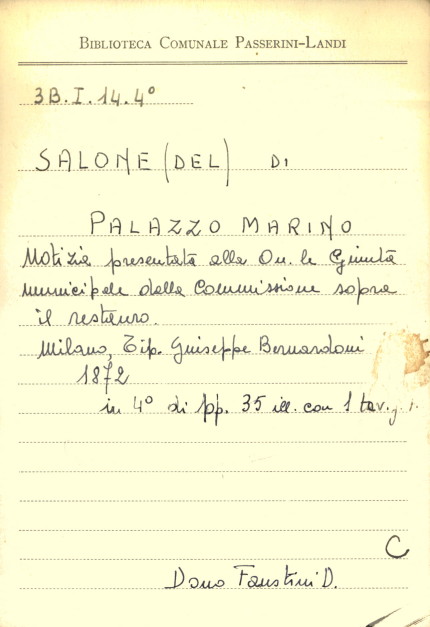 BIBLIOTECA COMUNALE PASSERINI-LANDI
3B.I.14.4°
SALONE (DEL) DI
PALAZZO MARINO
Notizia presentata alla On.le Giunta
municipale dalla Commissione sopra
il restauro.
Milano, Tip. Giuseppe Bernardoni
1872
in 4° di pp. 35 ill. con 1 tav.
C
Dono Faustini D.